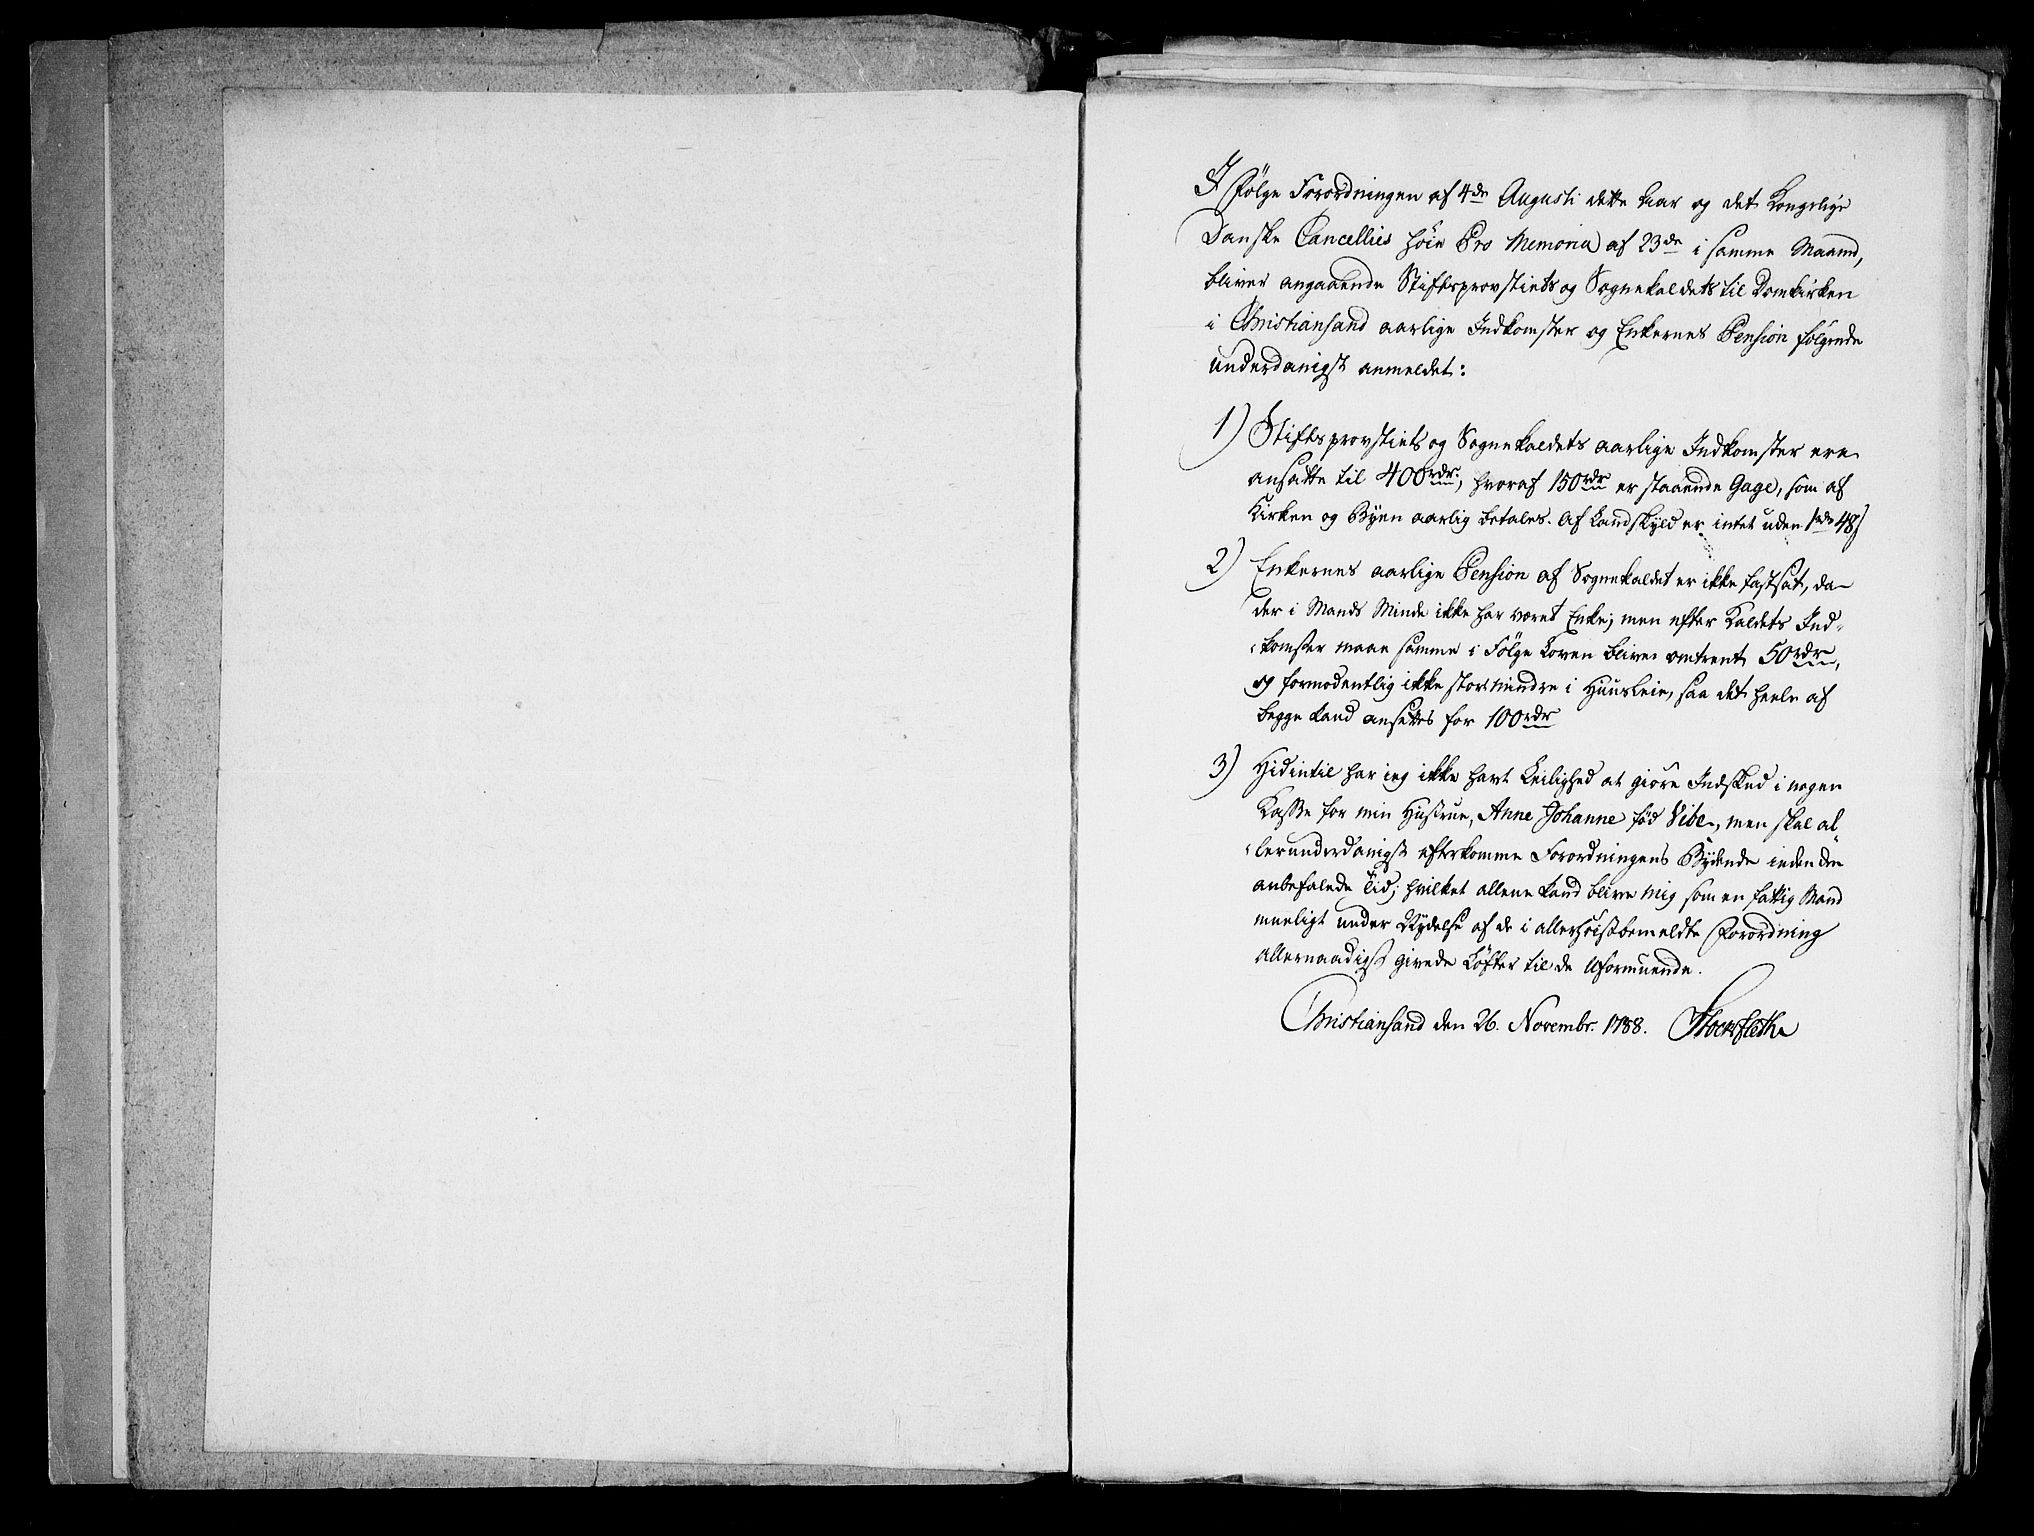 I Følge Forordningen af 4de Augusti dette Aar og det Kongelige
Danske Cancellies høie Pro Memoria af 23de i samme Maaned,
bliver angaaende Stiftsprovstiets og Sognekaldets til Domkirken
i Christiansand aarlige Indkomster og Enkernes Pension følgende
underdanigst anmeldet:
1) Stiftsprovstiets og Sognekaldets aarlige Indkomster ere
ansatte til 400rdr, hvoraf 150rdr er staaende Gage, som af
Kirken og Byen aarlig betales. Af Landskyld er intet uden 1rdr 48s
2) Enkernes aarlige Pension af Sognekaldet er ikke fastsat, da
der i Mands Minde ikke har været Enke; men efter Kaldets Ind-
komster maae samme i Følge Loven blive omtrent 50rdr,
og formodentlig ikke stor mindre i Huusleie, saa det heele af
begge kand ansettes for 100rdr
3) Hidintil har ieg ikke havt Leilighed at giøre Indskud i nogen
Kasse for min Hustrue, Anne Johanne fød Vibe, men skal al-
lerunderdanigst efterkomme Forordningens Bydende inden den
anbefalede Tid; hvilket allene kand blive mig som en fattig Mand
mueligt under Nydelse af de i allerhøistbemeldte Forordning
allernaadigst givede Løfter til de Uformuende.
Christiansand den 26. Novembr. 1788. Stockfleth